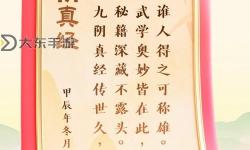 大东手游
阴真经
甲辰年冬月
九阴真经传世久，
秘籍深藏不露头。
武学奥妙皆在此，
谁人得之可称雄。